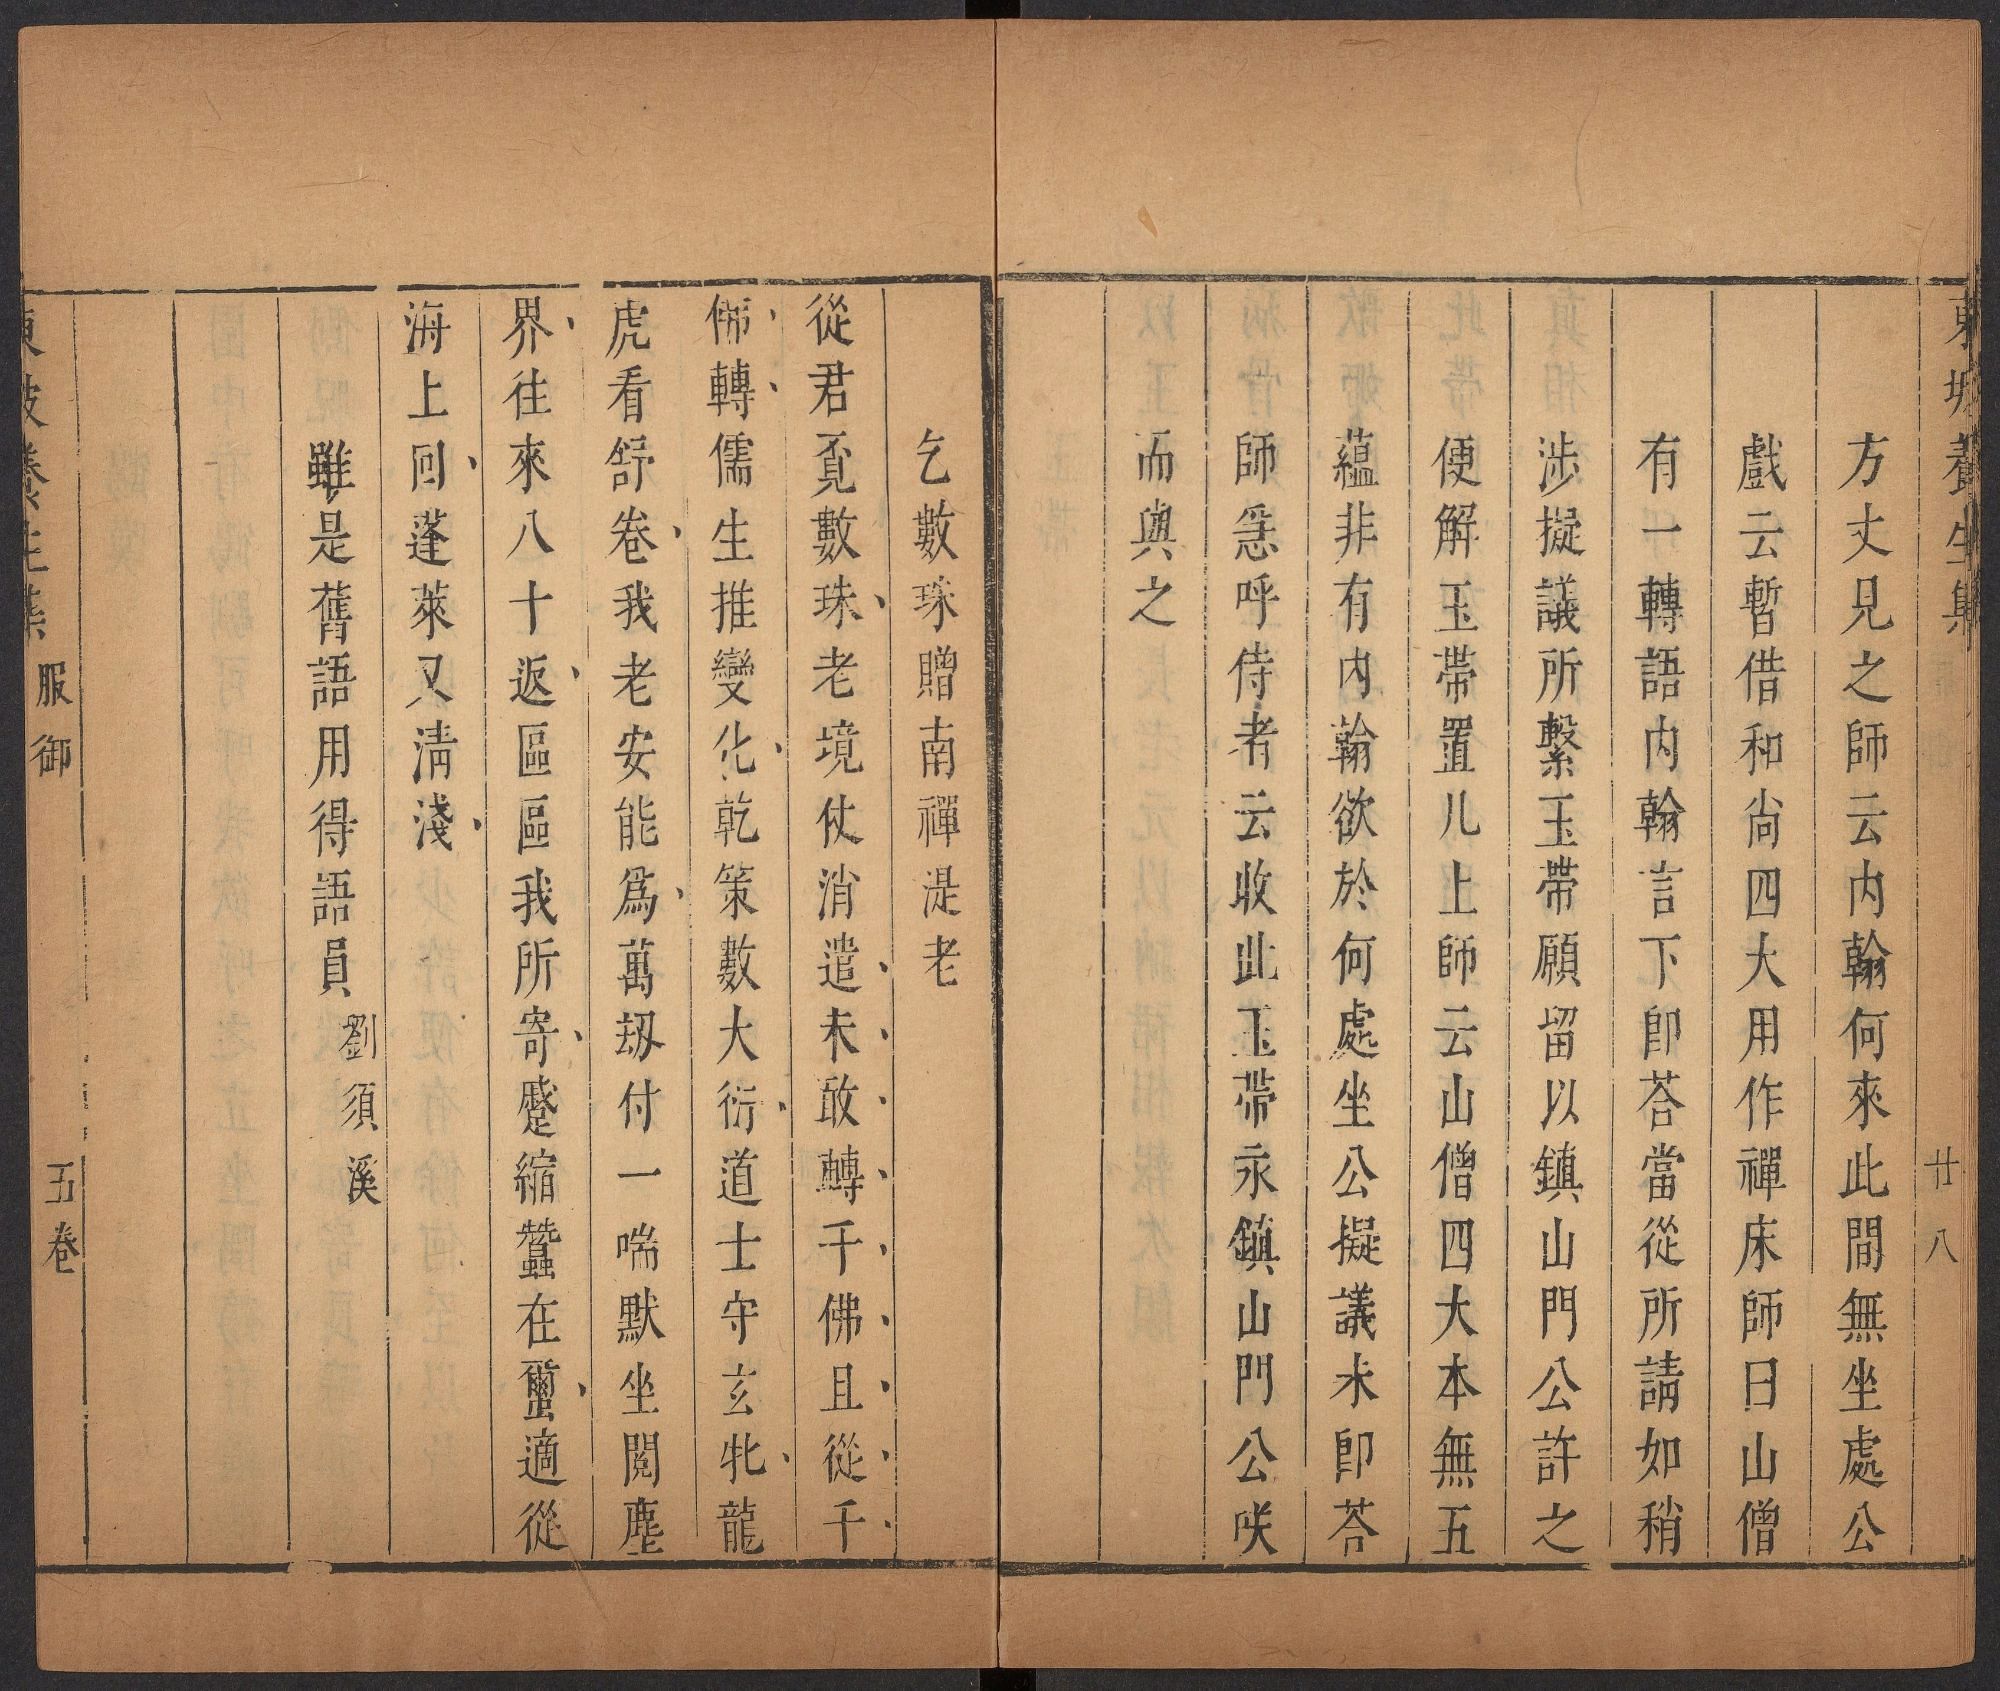 東坡養生集
廿八
方丈見之師云內翰何來此間無坐處公
戲云暫借和尚四大用作禪床師曰山僧
有一轉語內翰言下卽荅當從所請如稍
涉擬議所繫玉帶願留以鎮山門公許之
便解玉帶置几上師云山僧四大本無五
蘊非有內翰欲於何處坐公擬議未卽荅
師急呼侍者云收此玉帶永鎮山門公咲
而與之
乞數珠贈南禪湜老
從君覔數珠老境仗消遣未敢轉千佛且從千
佛轉儒生推變化乾策數大衍道士守玄牝龍
虎看舒卷我老安能爲萬刼付一喘默坐閱塵
界往來八十返區區我所寄蹙縮蠶在蠒適從
海上回蓬萊又淸淺
雖是舊語用得語員 劉須溪
東坡養生集 服御 五卷